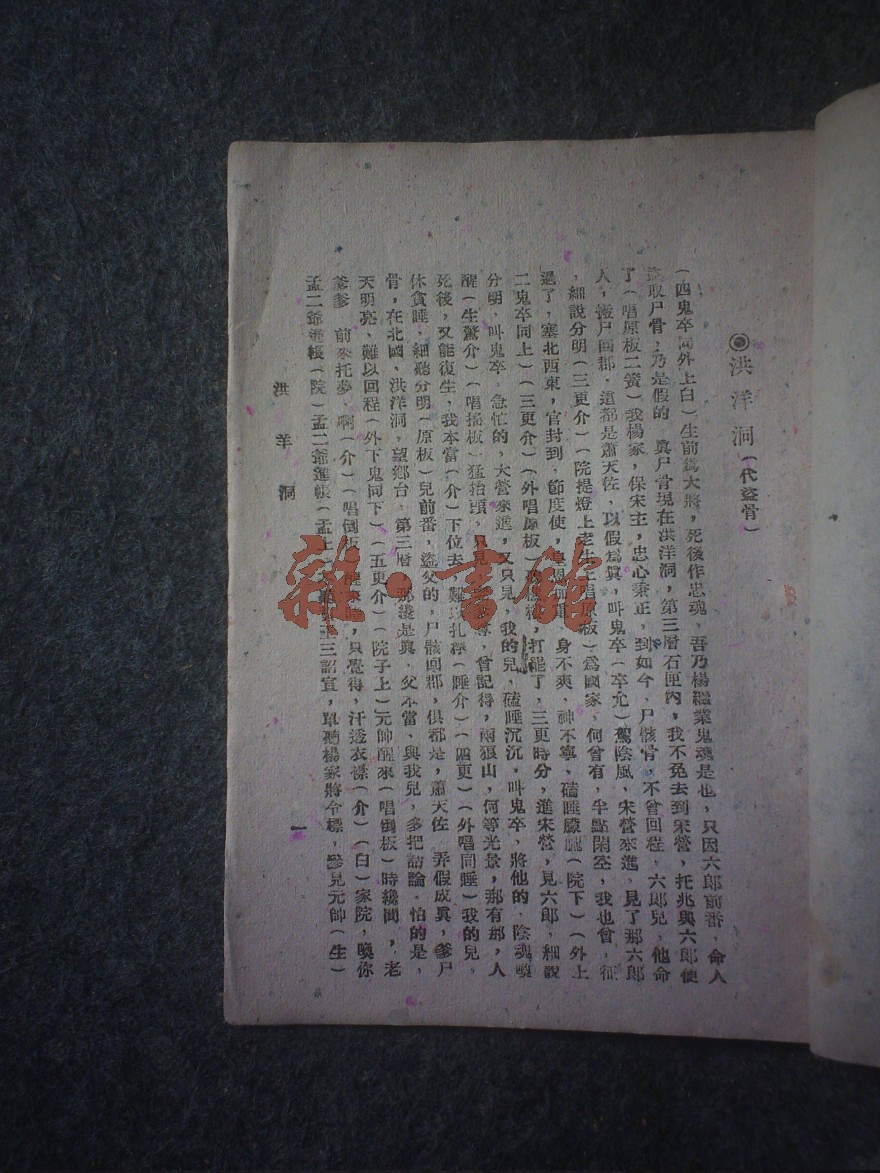 ◉洪洋洞(代盜骨)
(四鬼卒同外上白)生前爲大將,死後作忠魂,吾乃楊繼業鬼魂是也,只因六郎前番,命人
盜取尸骨,乃是假的 眞尸骨現在洪洋洞,第三層石匣內,我不免去到宋營,托兆與六郎便
了(唱原板二簧)我楊家,保宋主,忠心秉正,到如今,尸骸骨,不曾回程,六郎兒,他命
人,搬尸回郡,這都是蕭天佐,以假爲眞,叫鬼卒(卒允)駕陰風,宋營來進,見了那六郎
,細說分明(三更介)(院提燈上老生上唱原板)爲國家,何曾有,半點閑空,我也曾,征
過了,塞北西東,官封到,節度使,身不爽,神不寧,磕睡朦朧(院下)(外上
二鬼卒同上)(三更介)(外唱原板)打罷了,三更時分,進宋營,見六郎,細說
分明,叫鬼卒,急忙的,大營來進,又只見,我的兒,磕睡沉沉,叫鬼卒,將他的,陰魂喚
醒(生驚介)(唱搖板)猛抬頭,只見曾記得,兩狼山,何等光景,那有那,人
死後,又能復生,我本當(介)下位去,難以扎掙(睡介)(四更)(外唱同睡)我的兒,
休貪睡,細聽分明(原板)兒前番,盜父的,尸骸回郡,俱都是,蕭天佐 弄假成眞,爹尸
骨,在北國,洪洋洞,望鄉台,第三層 那纔是眞,父不當、與我兒,多把話論,怕的是,
天明亮、難以回程(外下鬼同下)(五更介)(院子上)元帥醒來(唱倒板)時纔間,老
爹爹 前來托夢,啊(介)(唱倒板)醒來,只覺得,汗透衣襟(介)(白)家院,喚你
孟二爺進帳(院)孟二爺進帳(孟上)三詔宣,單聽楊家將令標,參見元帥(生)
洪羊洞
一
雜·書館